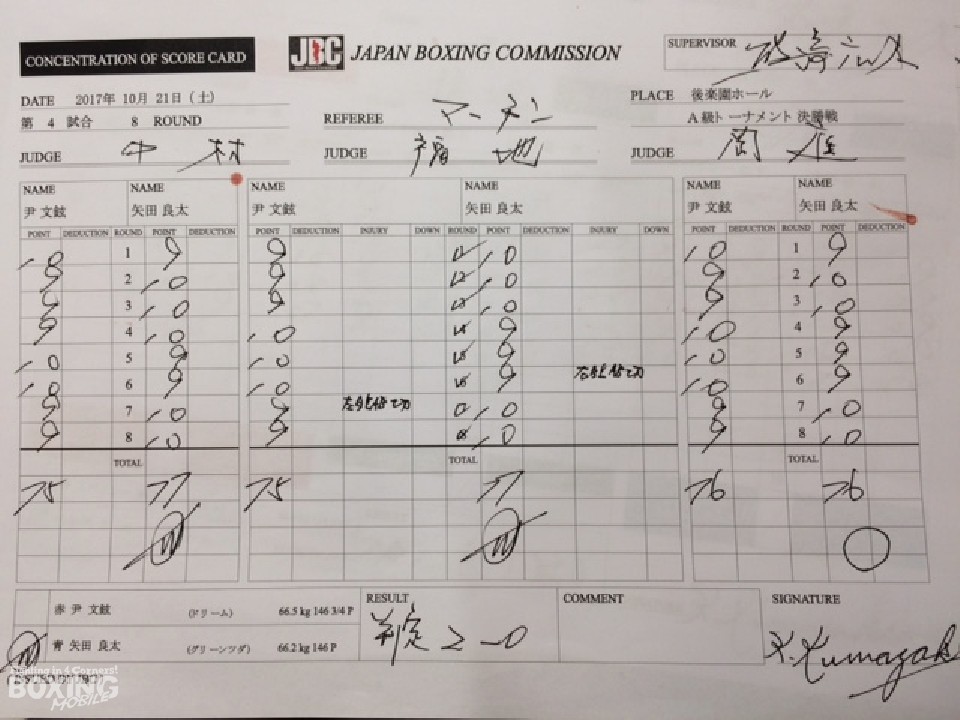 CONCENTRATION OF SCORE CARD
JBC JAPAN BOXING COMMISSION
SUPERVISOR
DATE 2017年 10月 21日 (土)
PLACE 後楽園ホール
第 4 試合 8 ROUND
REFEREE マーチン
A級トーナメント 決勝戦
JUDGE 中村
JUDGE 福地
JUDGE
NAME NAME NAME NAME NAME NAME
尹 文鉉 矢田 良太 尹 文鉉 矢田 良太 尹 文鉉 矢田 良太
POINT DEDUCTION ROUND POINT DEDUCTION POINT DEDUCTION INJURY DOWN ROUND POINT DEDUCTION INJURY DOWN POINT DEDUCTION ROUND POINT DEDUCTION
10 1 9 9 10 10 1 9
9 2 10 9 10 9 2 10
9 3 10 9 10 9 3 10
9 4 10 10 9 10 4 9
10 5 9 10 9 10 5 9
10 6 9 10 9 10 6 9
9 7 10 9 10 9 7 10
9 8 10 9 10 9 8 10
TOTAL TOTAL TOTAL
75 77 75 77 76 76
赤 尹 文鉉 (ドリーム) 66.5 kg 146 3/4 P
RESULT 判定 2-0
COMMENT
SIGNATURE
青 矢田 良太 (グリーンツダ) 66.2 kg 146 P
K. Kumazaki
Everything in 4 Corners!
BOXING
MOBILE